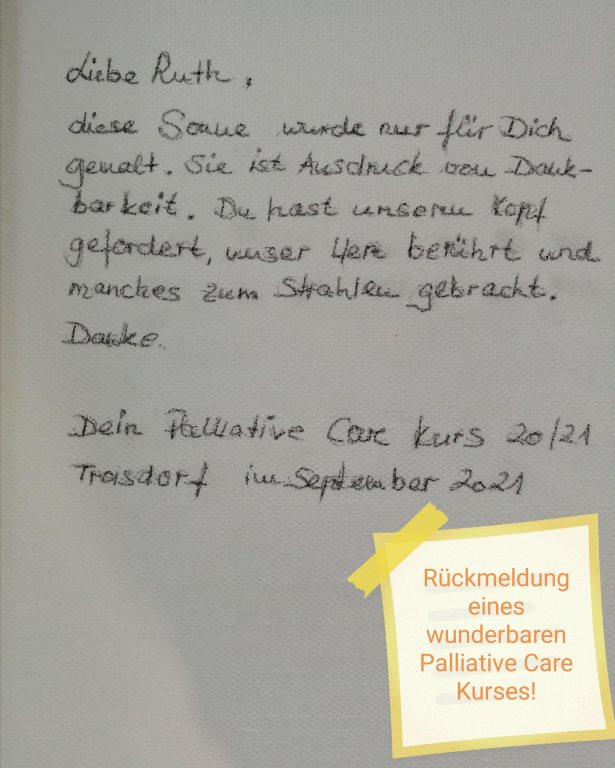 Liebe Ruth,
diese Sonne wurde nur für Dich
gemalt. Sie ist Ausdruck von Dank-
barkeit. Du hast unseren Kopf
gefordert, unser Herz berührt und
manches zum Strahlen gebracht.
Danke.
Dein Palliative Care Kurs 20/21
Trasdorf im September 2021
Rückmeldung
eines
wunderbaren
Palliative Care
Kurses!